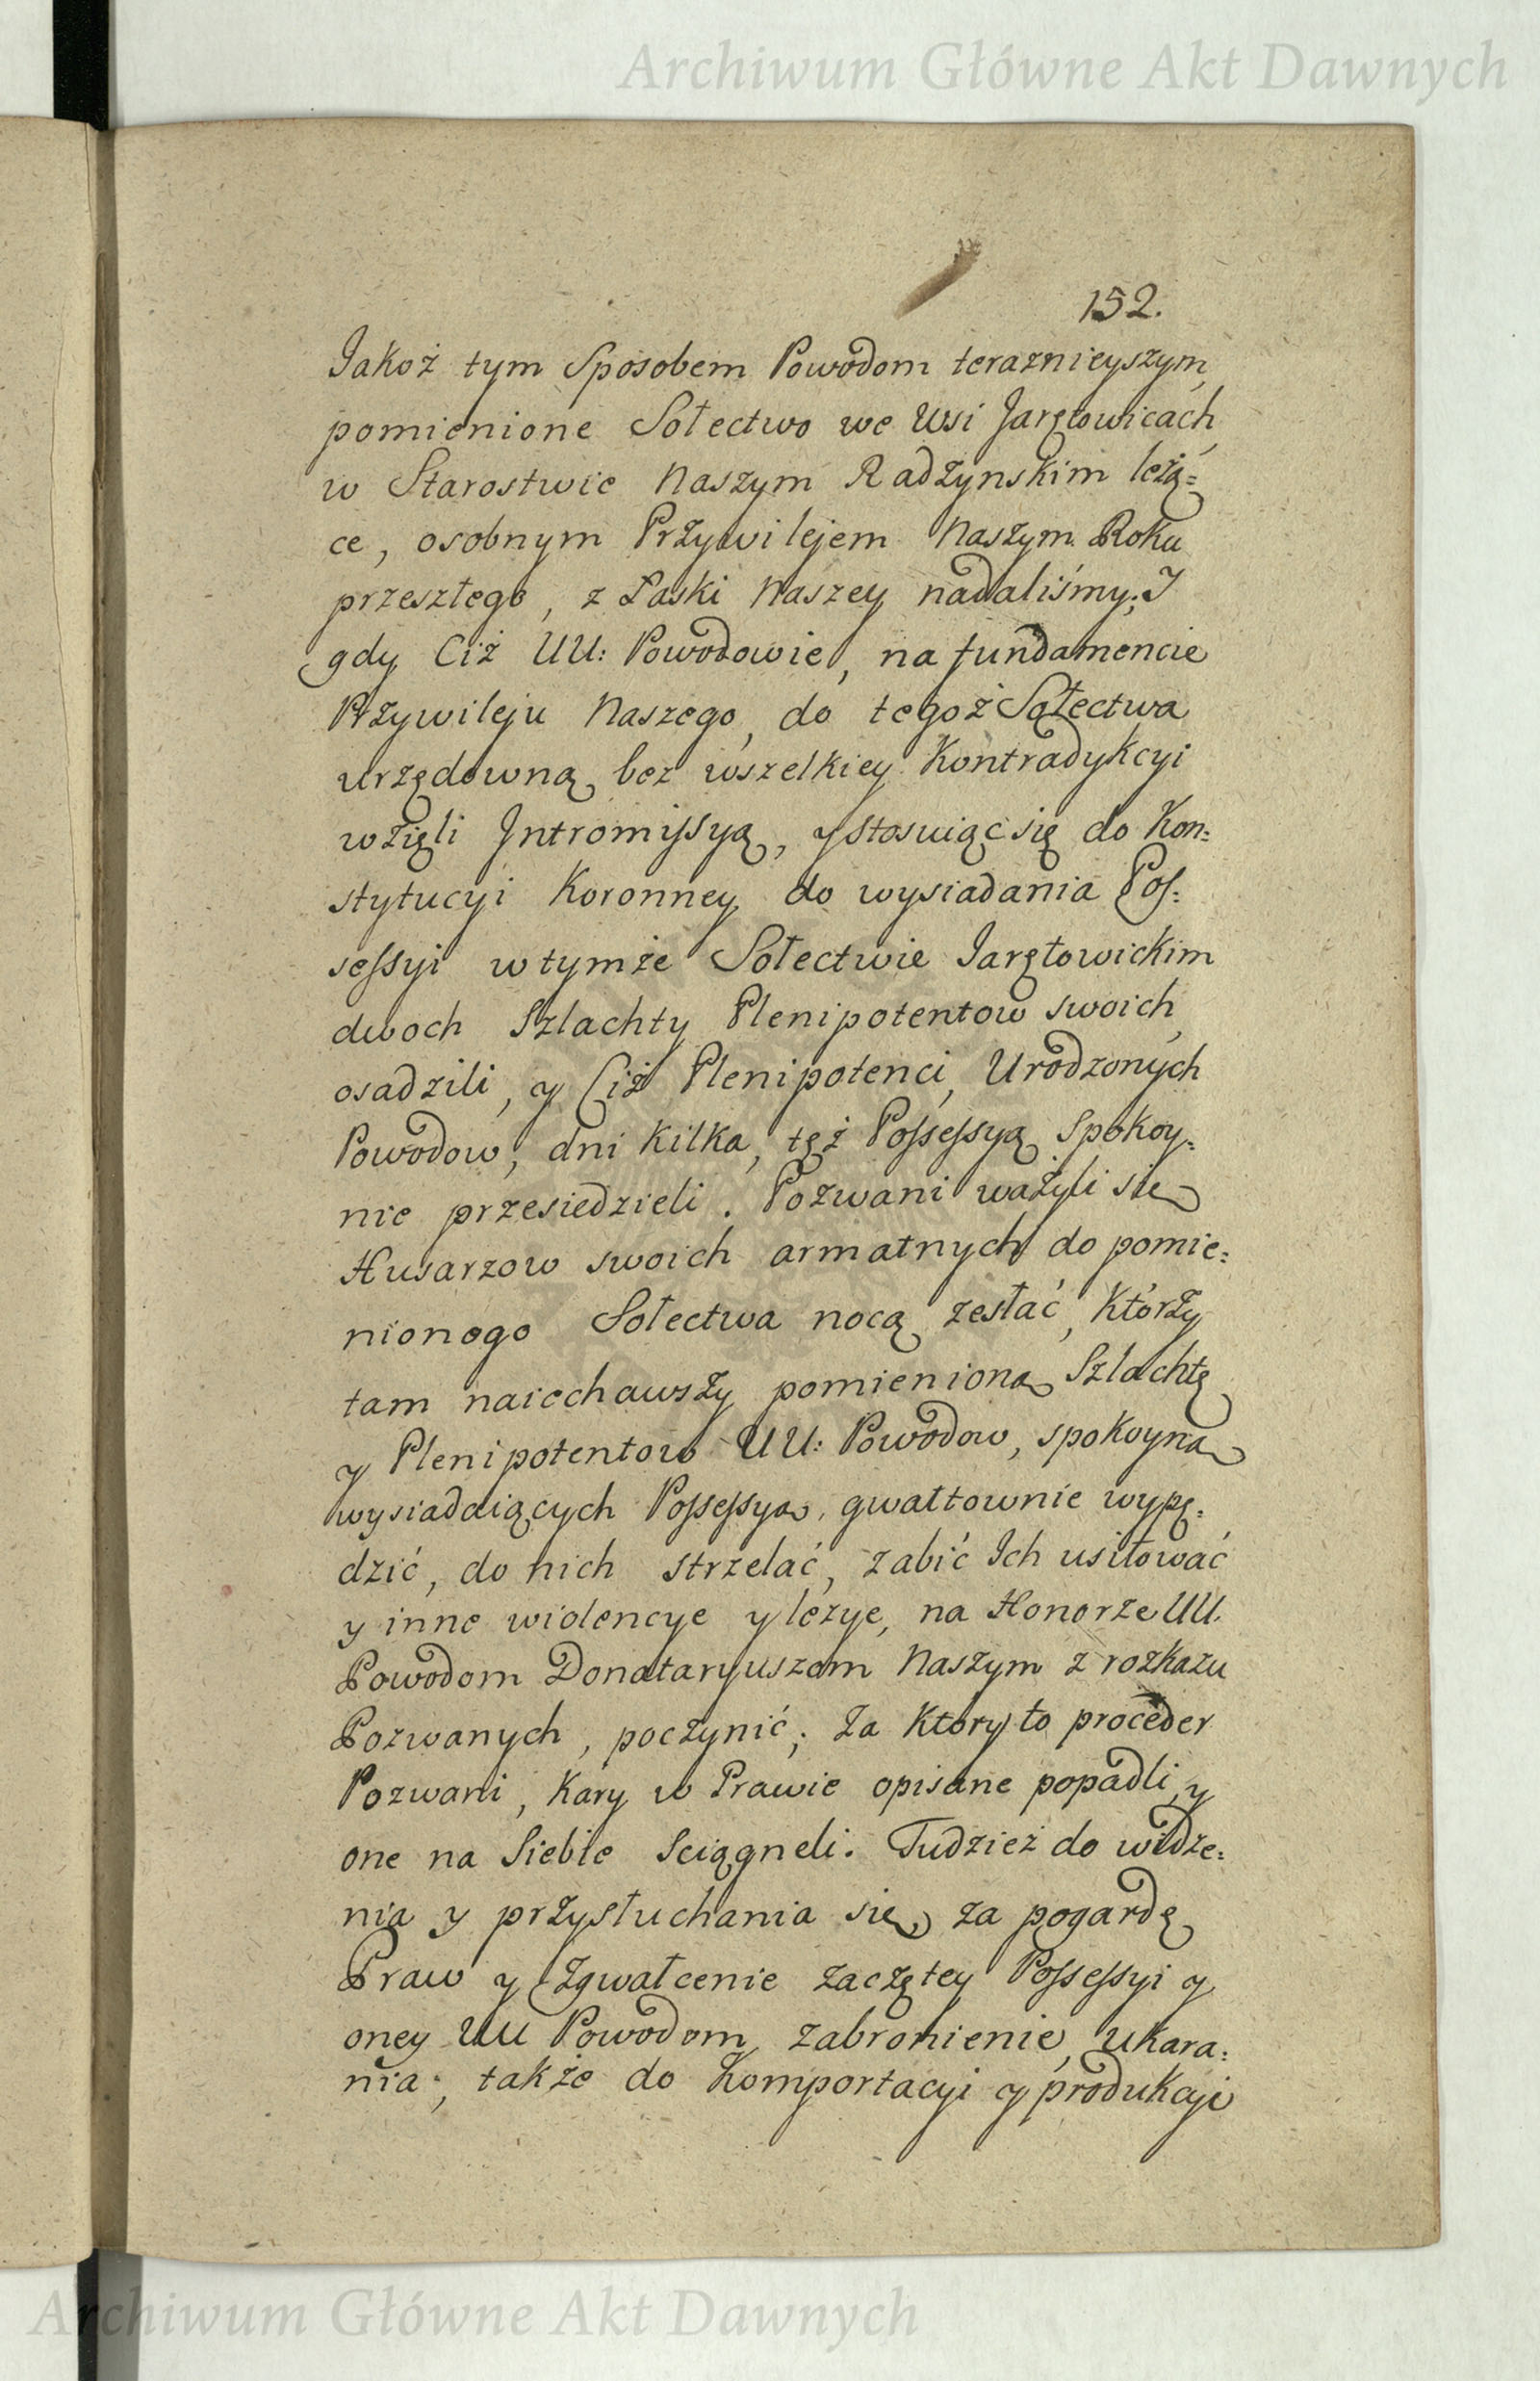 Archiwum Główne Akt Dawnych
152.
Jakoż tym Sposobem Powodom teraznieyszym
pomienione Sołectwo we Wsi Jaręłowicach
w Starostwie Naszym Radżynskim leżą=
ce, osobnym Przywilejem Naszym Roku
przeszłego, z Łaski Naszey nadaliśmy; I
gdy Ciż UU: Powodowie, na fundamencie
Przywileju Naszego, do tegoż Sołectwa
urzędowną bez wszelkiey Kontradykcyi
wzięli Intromissyą, y stosuiąc się do Kon=
stytucyi Koronney do wysiadania Pos=
sessyi w tymże Sołectwie Jaręłowickim
dwoch Szlachty Plenipotentow swoich
osadzili, y Ciż Plenipotenci, Urodzonych
Powodow, dni kilka, tęż Possessyą Spokoy=
nie przesiedzieli. Pozwani ważyli się
Husarzow swoich armatnych do pomie=
nionogo Sołectwa nocą zesłać, którzy
tam naiechawszy pomienioną Szlachtę
y Plenipotentow UU: Powodow, spokoyną
wysiadaiących Possessyą, gwałtownie wypę=
dzić, do nich strzelać, zabić Ich usiłować
y inne wiolencye y lezye, na Honorze UU.
Powodom Donataryuszom Naszym z rozkazu
Pozwanych, poczynić; za ktory to proceder
Pozwani, kary w Prawie opisane popadli, y
one na Siebie Sciągneli. Tudzież do widze=
nia y przysłuchania się, za pogardę
Praw y zgwałcenie zaczętey Possessyi y
oney UU Powodom zabronienie, ukara=
nia; także do komportacyi y produkcyi
Archiwum Główne Akt Dawnych